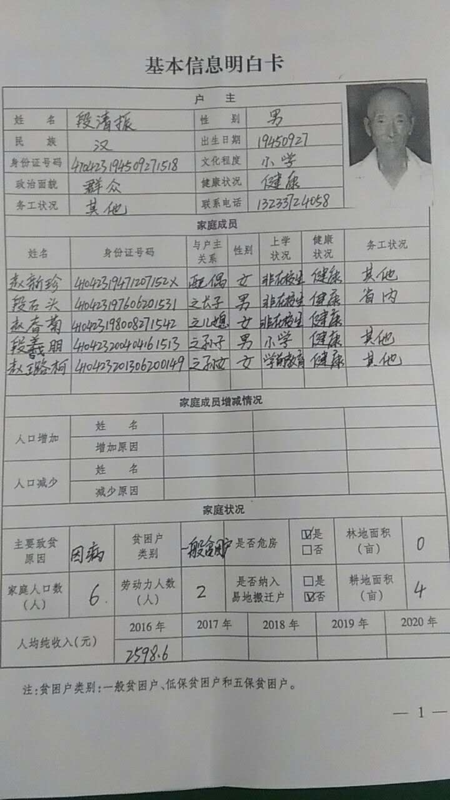 基本信息明白卡
户主
姓名 段清振 性别 男
民族 汉 出生日期 19450927
身份证号码 410423194509271518 文化程度 小学
政治面貌 群众 健康状况 健康
务工状况 其他 联系电话 13233724058
家庭成员
姓名 身份证号码 与户主关系 性别 上学状况 健康状况 务工状况
赵新珍 41042319471207152X 配偶 女 非在校生 健康 其他
段石头 410423197606201531 之长子 男 非在校生 健康 省内
赵香菊 410423198008271542 之儿媳 女 非在校生 健康 其他
段羲明 410423200404161513 之孙子 男 小学 健康 其他
赵璐柯 410423201306200149 之孙女 女 学前教育 健康
家庭成员增减情况
人口增加 姓名
增加原因
人口减少 姓名
减少原因
家庭状况
主要致贫原因 因病 贫困户类别 一般贫困户 是否危房 ☑是 □否 林地面积(亩) 0
家庭人口数(人) 6 劳动力人数(人) 2 是否纳入易地搬迁户 □是 ☑否 耕地面积(亩) 4
人均纯收入(元) 2016年 2017年 2018年 2019年 2020年
2598.6
注:贫困户类别:一般贫困户、低保贫困户和五保贫困户。
— 1 —